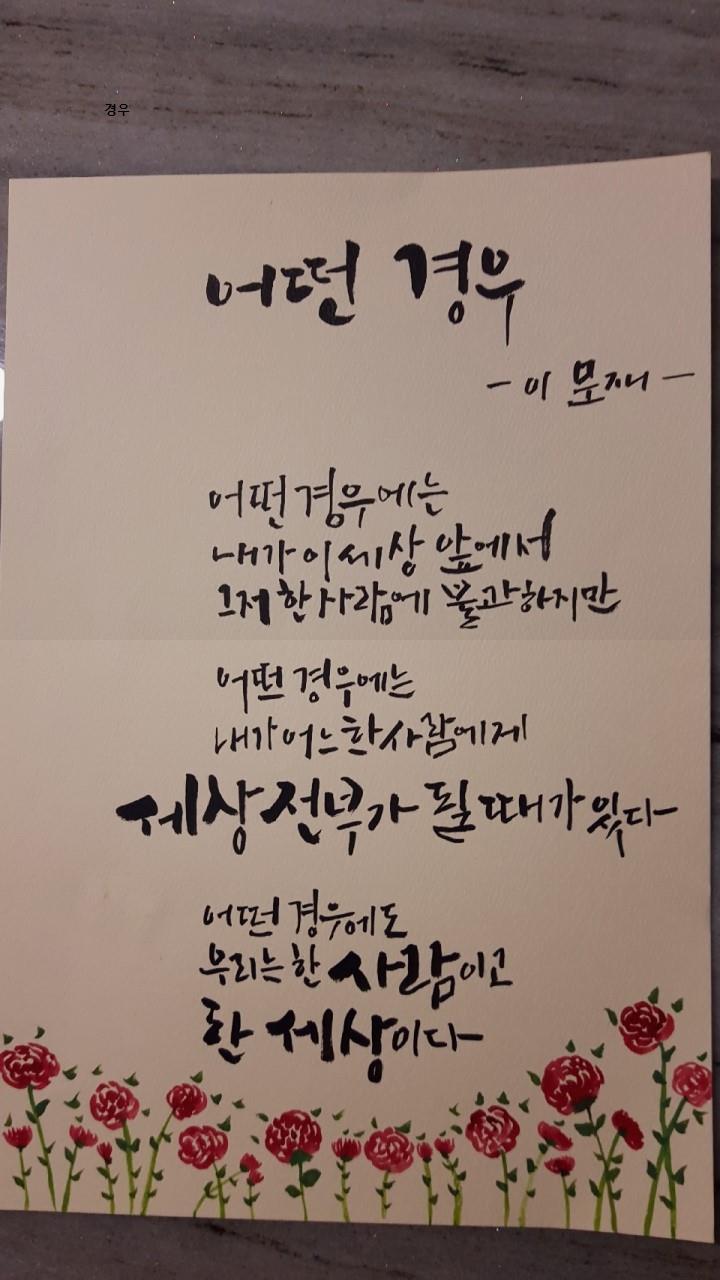 경우
어떤 경우
- 이문재 -
어떤 경우에는
내가 이 세상 앞에서
그저 한 사람에 불과하지만
어떤 경우에는
내가 어느 한 사람에게
세상 전부가 될 때가 있다
어떤 경우에도
우리는 한 사람이고
한 세상이다